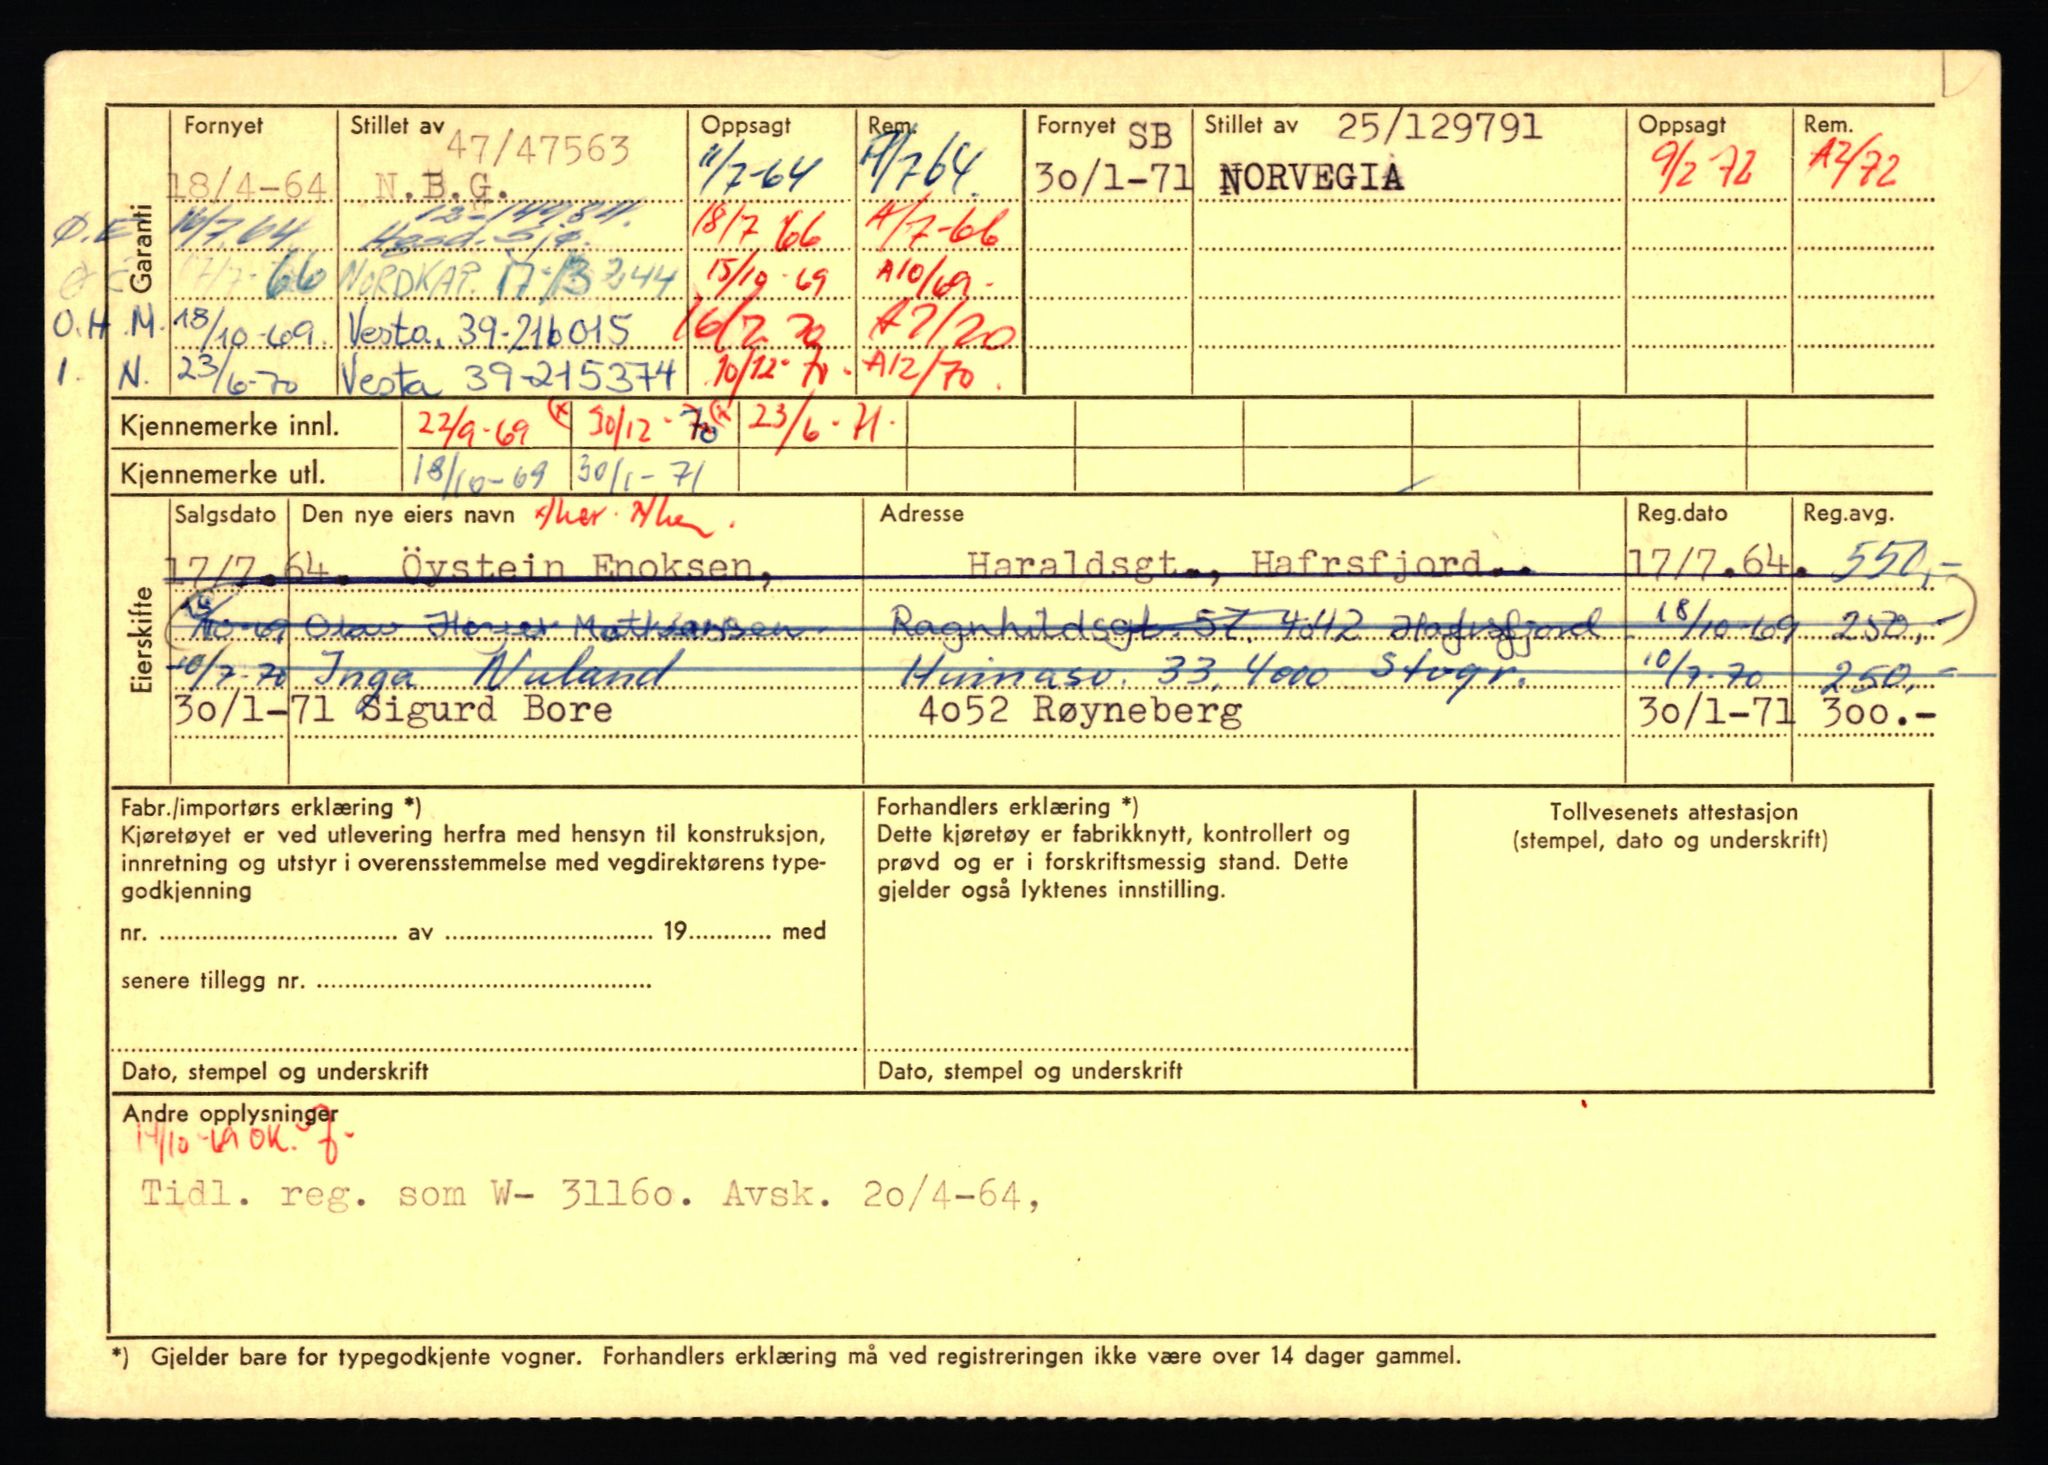 Garanti
Fornyet Stillet av Oppsagt Rem. Fornyet SB Stillet av 25/129791 Oppsagt Rem.
47/47563
18/4-64 N.B.G. 11/7-64 30/1-71 NORVEGIA 9/2 72 A2/72
Ø.E 18/7 66 A/7-66
17/7-66 NORDKAP. 17-13 244 15/10-69 A10/69.
O.H.M. 18/10-69. Vesta. 39-216015 A7/70
I. N. 23/6-70 Vesta 39-215374 10/12-70. A12/70.
Kjennemerke innl. 22/9-69 30/12-70 23/6-71.
Kjennemerke utl. 18/10-69 30/1-71
Eierskifte
Salgsdato Den nye eiers navn Adresse Reg.dato Reg.avg.
17/7.64. Öystein Enoksen, Haraldsgt., Hafrsfjord. 17/7.64. 550,-
Ragnhildsgt. 57, 4042 Hafrsfjord 18/10-69 250,-
10/7-70 Inga Nuland 33, 4000 Stvgr. 10/7-70 250,-
30/1-71 Sigurd Bore 4052 Røyneberg 30/1-71 300.-
Fabr./importørs erklæring *)
Kjøretøyet er ved utlevering herfra med hensyn til konstruksjon,
innretning og utstyr i overensstemmelse med vegdirektørens type-
godkjenning
nr. .................................. av .............................. 19............ med
senere tillegg nr. ................................................
Dato, stempel og underskrift
Forhandlers erklæring *)
Dette kjøretøy er fabrikknytt, kontrollert og
prøvd og er i forskriftsmessig stand. Dette
gjelder også lyktenes innstilling.
Dato, stempel og underskrift
Tollvesenets attestasjon
(stempel, dato og underskrift)
Andre opplysninger
14/10-69 OK.
Tidl. reg. som W- 31160. Avsk. 20/4-64,
*) Gjelder bare for typegodkjente vogner. Forhandlers erklæring må ved registreringen ikke være over 14 dager gammel.